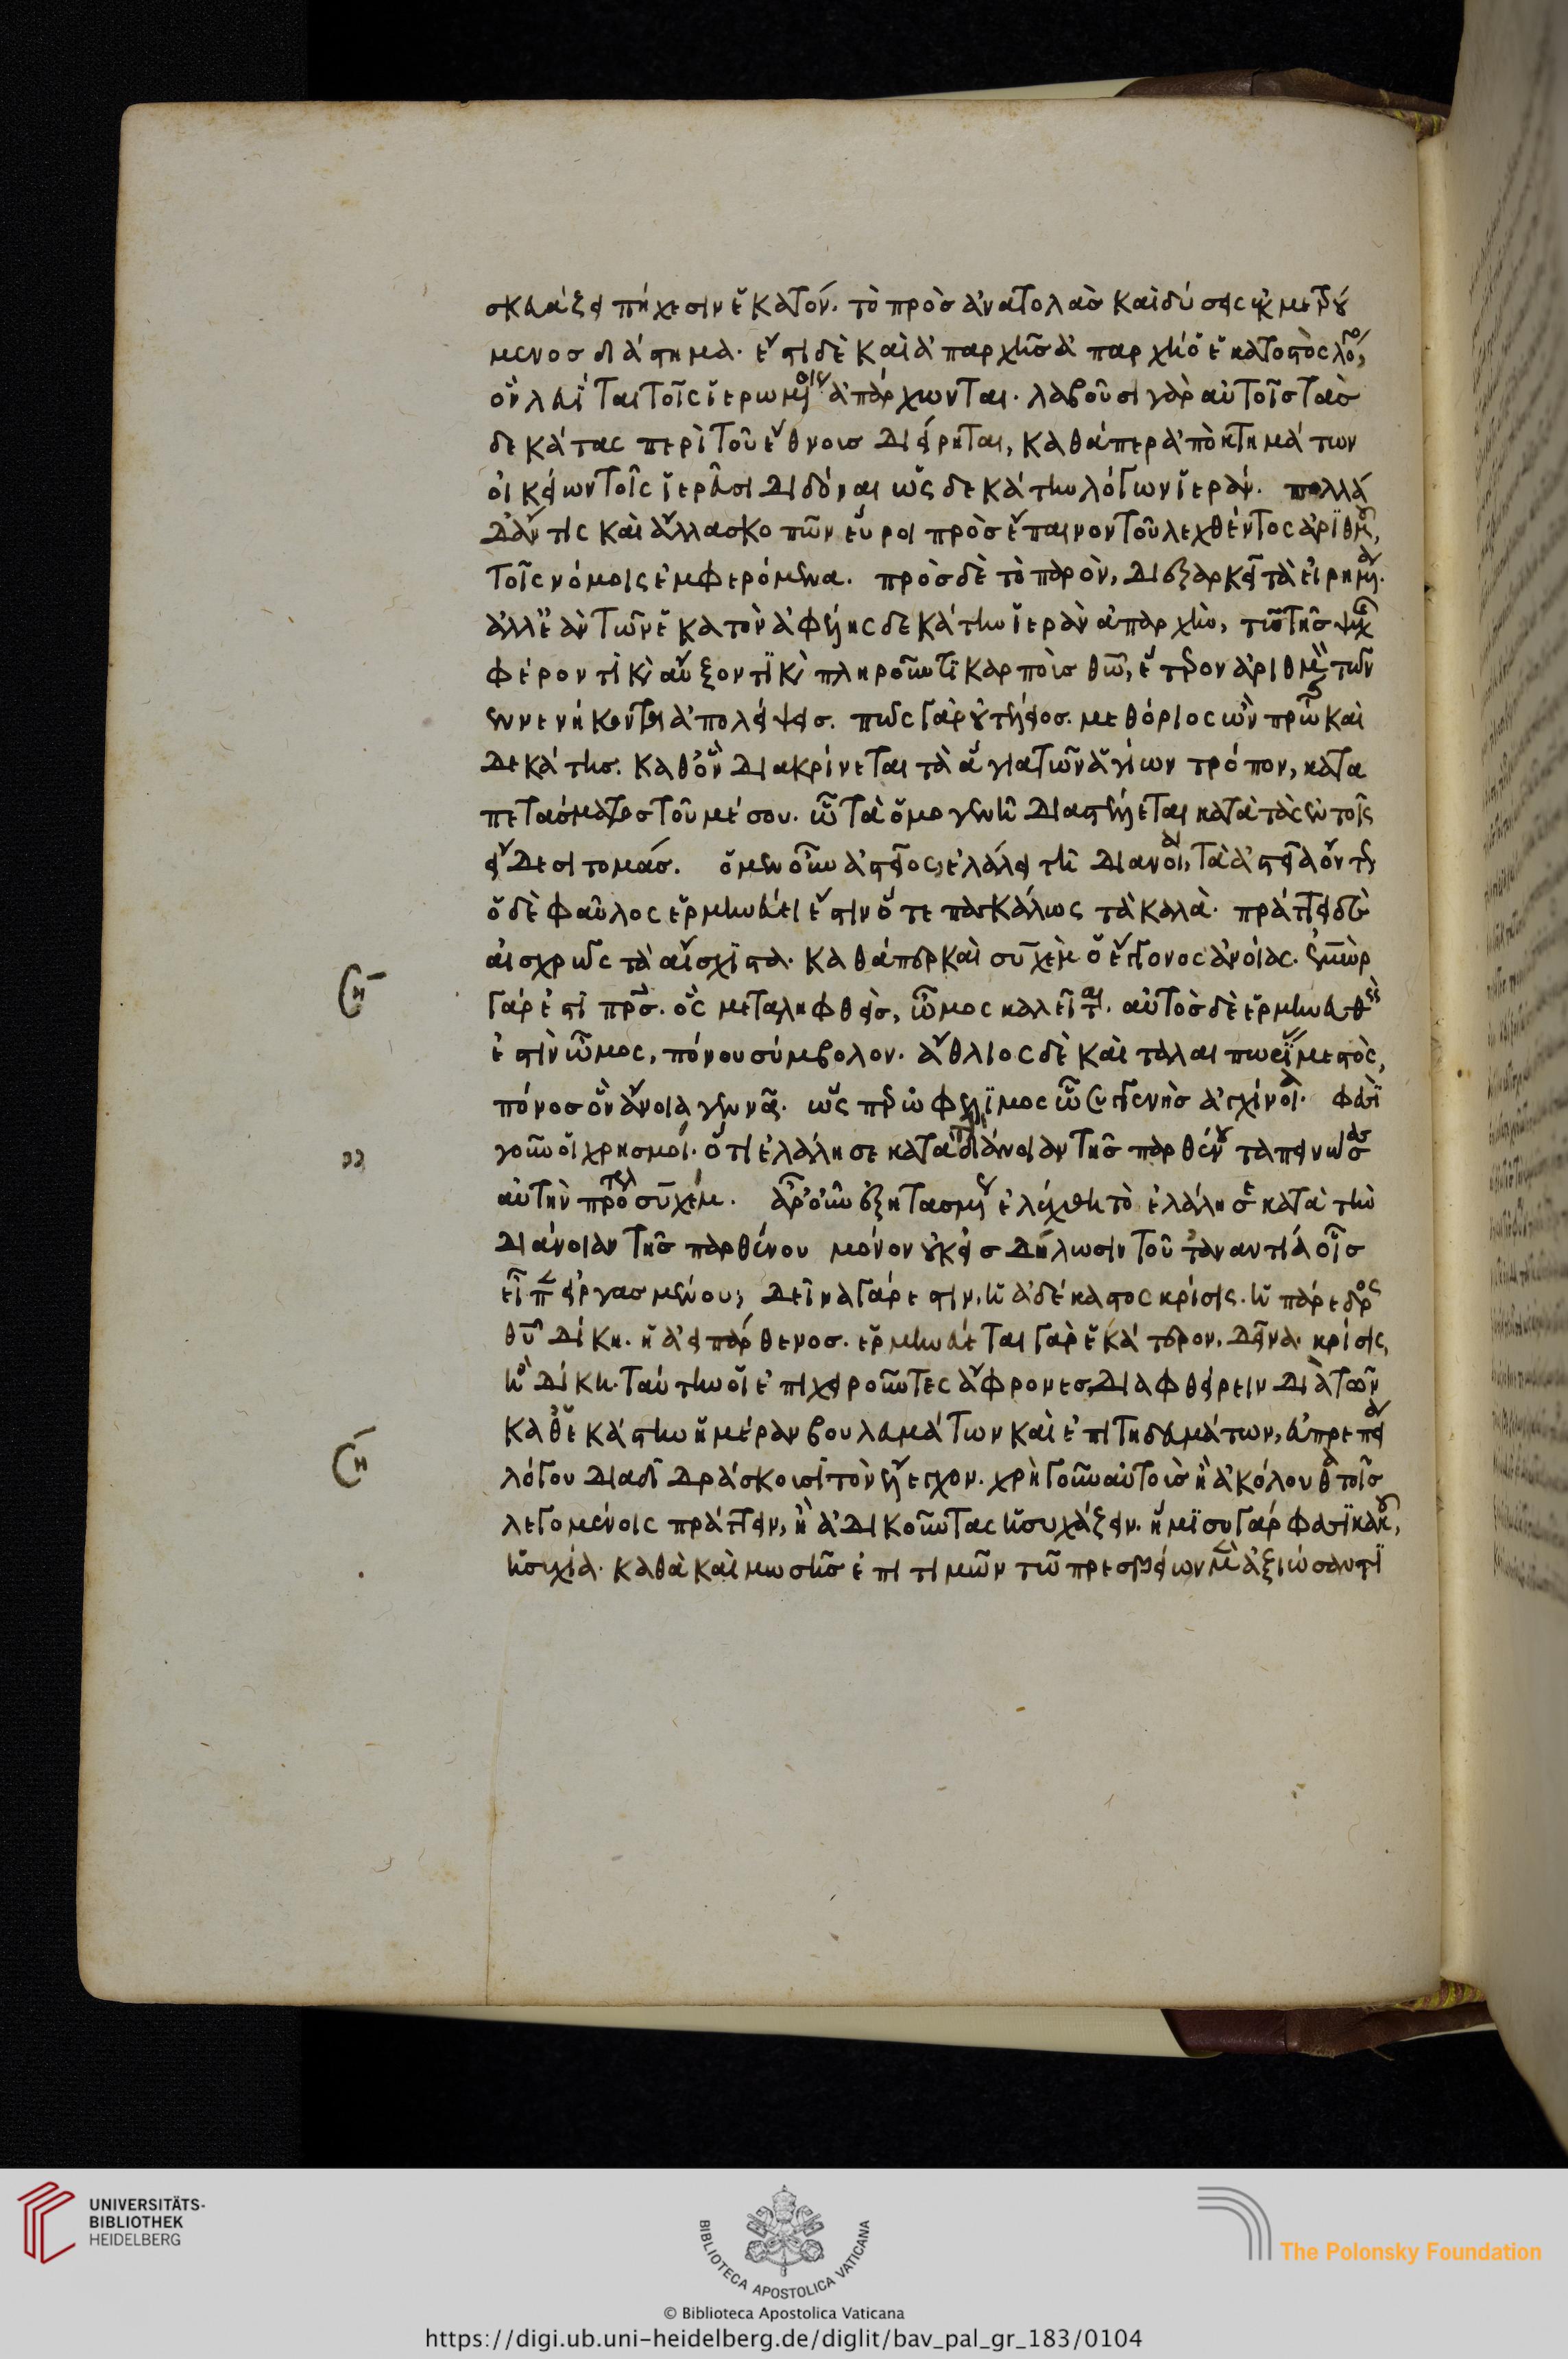 σκευάζει πήχεσιν ἑκατόν. τὸ πρὸς ἀνατολὰς καὶ δύσεις ἐκμετρού
μενος διάστημα. ἔστι δὲ καὶ ἀπαρχῆς ἀπαρχὴ ὁ ἑκατοστὸς λόγος,
ὃν λευῖται τοῖς ἱερωμένοις ἀπάρχωνται. λαβοῦσι γὰρ αὐτοῖς τὰς
δεκάτας περὶ τοῦ ἔθνους διείρηται, καθάπερ ἀπὸ κτημάτων
οἰκείων τοῖς ἱερεῦσι διδόναι ὡς δεκάτην λόγων ἱεράν. πολλὰ
δ' ἄν τις καὶ ἄλλα σκοπῶν εὕροι πρὸς ἔπαινον τοῦ λεχθέντος ἀριθμοῦ,
τοῖς νόμοις ἐμφερόμενα. πρὸς δὲ τὸ παρὸν, διεξαρκεῖ τὰ εἰρημένα.
ἀλλ' ἐὰν τῶν ἑκατὸν ἀφέλης δεκάτην ἱερὰν ἀπαρχὴν, τῶ τῆς ψυχῆς
φέροντι καὶ αὔξοντι καὶ πληροῦντι καρποὺς θεῶ, ἕτερον ἀριθμὸν τῶν
ἐννενήκοντα ἀπολείψεις. πῶς γὰρ οὐ τέλειος. μεθόριος ὢν πρώτης καὶ
δεκάτης. καθ' ὃν διακρίνεται τὰ ἅγια τῶν ἁγίων τρόπον, κατα
πετάσματος τοῦ μέσου. ὧ τὰ ὁμογενῆ διαστέλλεται κατὰ τὰς ἐν τοῖς
εἴδεσι τομάς. ὁ μὲν οὖν ἀστεῖος, ἐλάλει τῆ διανοία, τὰ ἀστεῖα ὄντως
ὁ δὲ φαῦλος ἑρμηνεύει ἔστιν ὅτε παγκάλως τὰ καλὰ. πράττει δὲ
αἰσχρῶς τὰ αἴσχιστα. καθάπερ καὶ συχὲμ ὁ ἔκγονος ἀνοίας. ἐμμὼρ
γάρ ἐστι πατρός. ὃς μεταληφθεὶς, ὦμος καλεῖται. αὐτὸς δὲ ἑρμηνευθεὶς
ἐστὶν ὦμος, πόνου σύμβολον. ἄθλιος δὲ καὶ ταλαιπωρίας μεστὸς,
πόνος ὃν ἄνοια γεννᾶ. ὡς πάλιν ὠφέλιμος ὧ συγγενὴς ἀγχίνοια. φασὶ
γοῦν οἱ χρησμοί. ὅτι ἐλάλησε κατὰ τὴν διάνοιαν τῆς παρθένου ταπεινώσας
αὐτὴν πρότερον συχέμ. ἆρ' οὖν ἐξητασμένως ἐλέχθη τὸ ἐλάλησε κατὰ τὴν
διάνοιαν τῆς παρθένου μόνον οὐκ εἰς δήλωσιν τοῦ τἀναντία οἷς
εἶπεν εἰργασμένου; δεῖνα γάρ ἐστιν, ἡ ἀδέκαστος κρίσις. ἡ πάρεδρος
θεοῦ δίκη. ἡ ἀειπάρθενος. ἑρμηνεύεται γὰρ ἑκάτερον. δεῖνα. κρίσις,
ἢ δίκη. ταύτην οἱ ἐπιχειροῦντες ἄφρονες, διαφθείρειν διὰ τῶν
καθ' ἑκάστην ἡμέραν βουλευμάτων καὶ ἐπιτηδευμάτων, εὐπρεπεία
λόγου διαδιδράσκουσι τὸν ἔλεγχον. χρὴ γοῦν αὐτοὺς ἢ ἀκόλουθα τοῖς
λεγομένοις πράττειν, ἢ ἀδικοῦντας ἡσυχάζειν. ἥμισυ γάρ φασὶ κακοῦ,
ἡσυχία. καθὰ καὶ μωσῆς ἐπιτιμῶν τῶ πρεσβείων μὲν ἀξιώσαντι
UNIVERSITÄTS-
BIBLIOTHEK
HEIDELBERG
BIBLIOTECA APOSTOLICA VATICANA
The Polonsky Foundation
© Biblioteca Apostolica Vaticana
https://digi.ub.uni-heidelberg.de/diglit/bav_pal_gr_183/0104